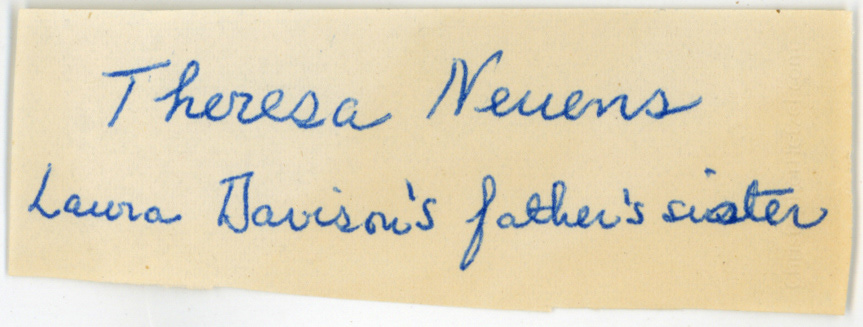 Theresa Neuens
Laura Davison's father's sister